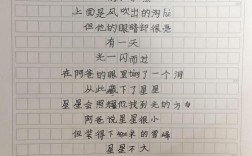 上面是风吹出的沟壑
但他的眼睛却很亮
有一天
光一闪而过
在阿爸的眼里留了一个洞
从此藏下了星星
星星会照耀他找到光的方向
阿爸说星星很小
但装得下如来的雪峰
星星不大